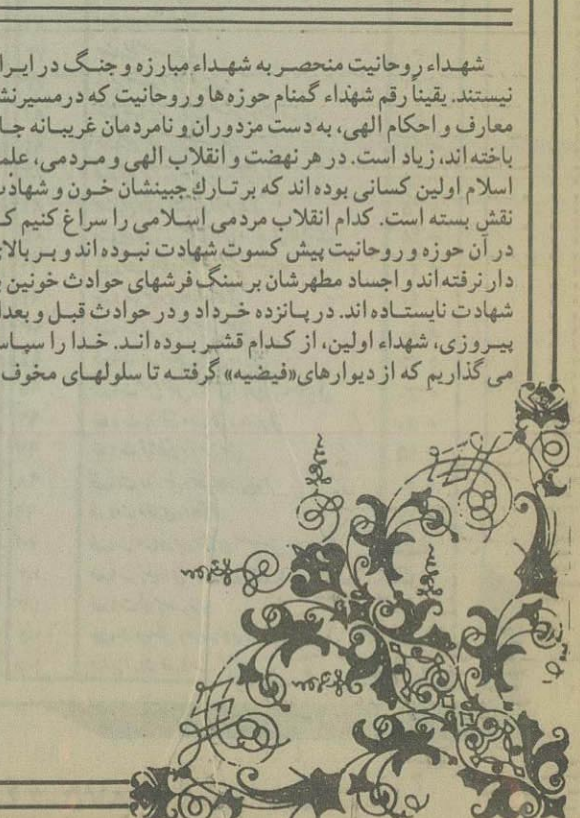 شهداء روحانیت منحصر به شهداء مبارزه و جنگ در ایرا
نیستند. یقیناً رقم شهداء گمنام حوزه ها و روحانیت که در مسیر نش
معارف و احکام الهی، به دست مزدوران و نامردمان غریبانه جا
باخته اند، زیاد است. در هر نهضت و انقلاب الهی و مردمی، علم
اسلام اولین کسانی بوده اند که بر تارك جبینشان خون و شهادت
نقش بسته است. کدام انقلاب مردمی اسلامی را سراغ کنیم ک
در آن حوزه و روحانیت پیش کسوت شهادت نبوده اند و بر بالای
دار نرفته اند و اجساد مطهرشان بر سنگ فرشهای حوادث خونین ب
شهادت نایستاده اند. در پانزده خرداد و در حوادث قبل و بعد ا
پیروزی، شهداء اولین، از کدام قشر بوده اند. خدا را سپاس
می گذاریم که از دیوارهای «فیضیه» گرفته تا سلولهای مخوف